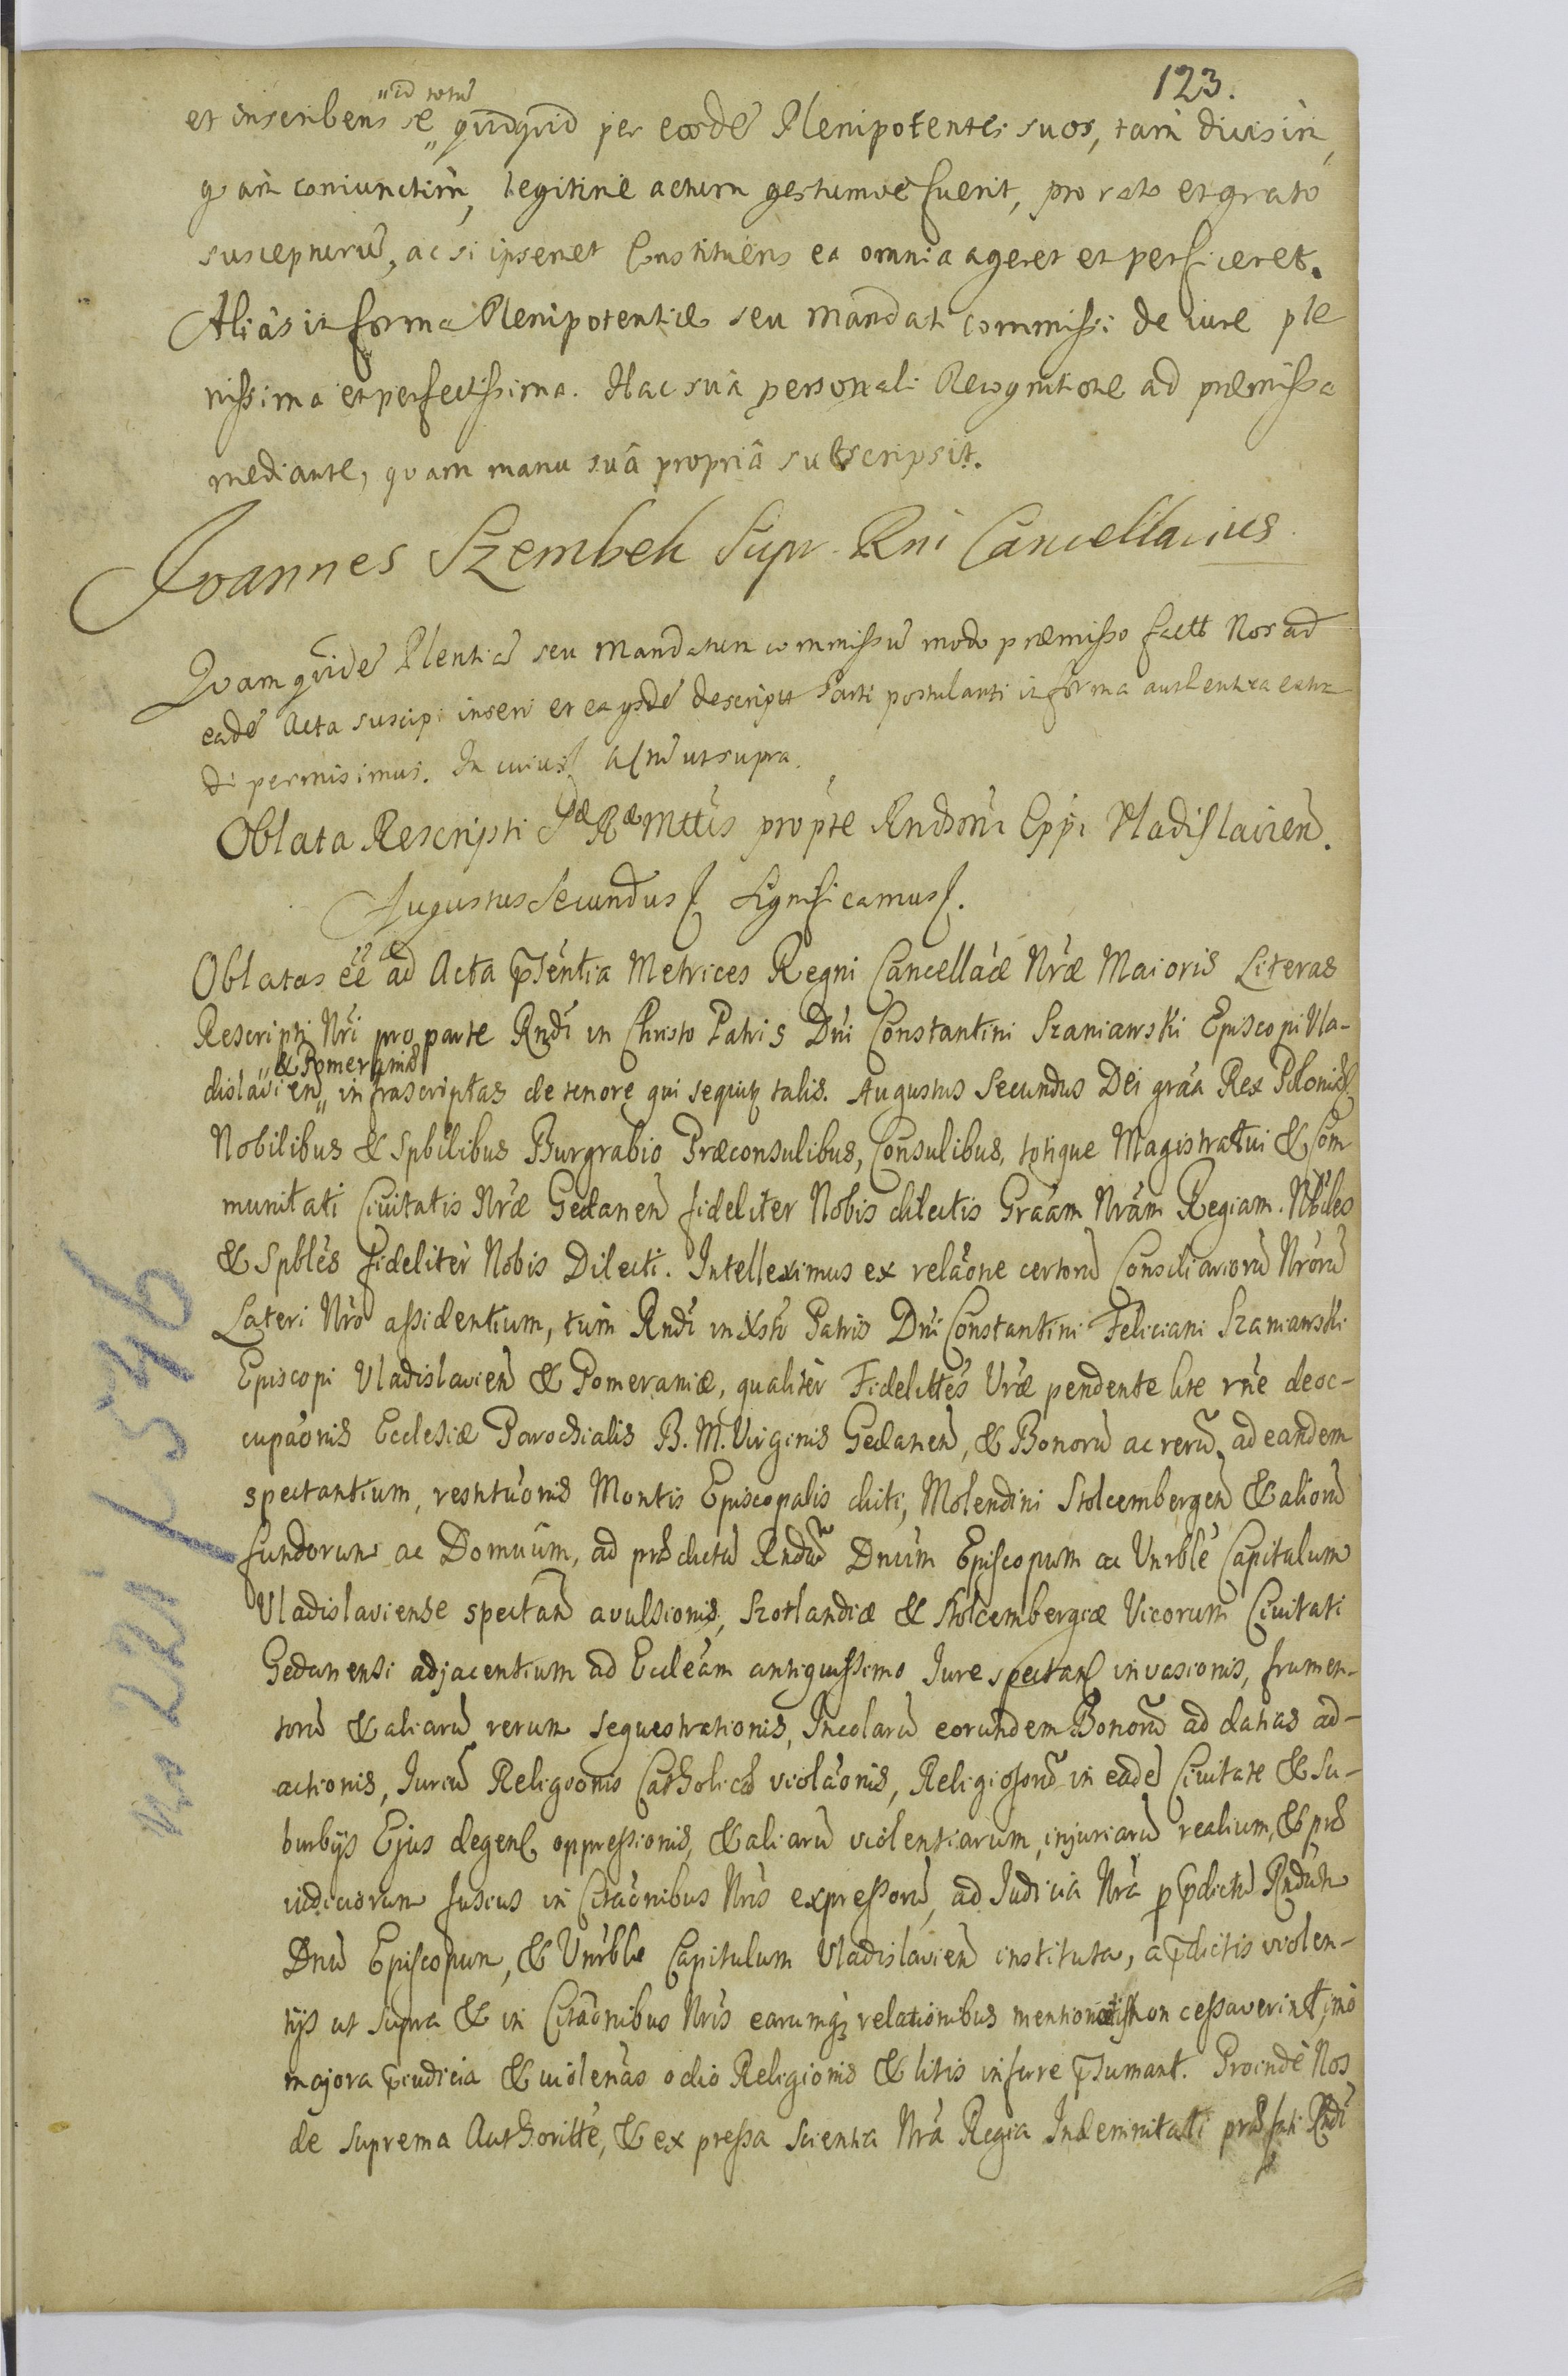 123.
"id totū
et inscribens se „ quidquid per eosdē Plenipotentes suos, tam divisim,
quam coniunctim, legitime actum gestumve fuerit, pro rato et grato
suscepturū, ac si ipsemet Constituens ea omnia ageret et perficeret.
Alias in forma Plenipotentiæ seu mandati commissi de iure ple
nissima et perfectissima. Hac suâ personali Recognitione ad præmissa
mediante, quam manu suâ propriâ subscripsit.
Joannes Szembek Supr. Rni Cancellarius
Quam quidē Plentiā seu Mandatum commissū modo præmisso factt Nos ad
eadē Acta suscipi inseri et ea descript Parti postulanti in forma authentica extra
di permisimus. In cuius ut supra.
Oblata Rescripti SæRæMttis pro pte Rndsmi Eppi Vladislavień.
Augustus Secundus Significamus
Oblatas eē ad Acta p̄sentia Metrices Regni Cancellaæ Nræ Maioris Literas
Rescripti Nri pro parte Rndi in Christo Patris Dni Constantini Szaniawski Episcopi Vla-
& Pomeraniæ
dislavień „ infrascriptas de tenore qui sequitꝛ talis. Augustus Secundus Dei gráa Rex Poloniæ
Nobilibus & Spbilibus Burgrabio Præconsulibus, Consulibus, totique Magistratui & Com
munitati Civitatis Nræ Gedaneń fideliter Nobis dilectis Graám Nrám Regiam. Nobiles
& Spbles fideliter Nobis Dilecti. Intelleximus ex relaóne certorū Consiliariorū Nrorū
Lateri Nro assidentium, tum Rndi in Xsto Patris Dni Constantini Feliciani Szaniawski
Episcopi Vladislavień & Pomeraniæ, qualiter Fidelittes Vræ pendente lite rne deoc-
cupaónis Ecclesiæ Parochialis B. M. Virginis Gedaneń, & Bonorū ac rerū ad eandem
spectantium, restitu'onis Montis Episcopalis dicti, Molendini Stolcembergeń & aliorū
fundorum ac Domuum, ad prædictū Rndū Dnum Episcopum ac Vnrble Capitulum
Vladislaviense spectań avulsionis, Szotlandiæ & Stolcembergiæ Vicorum Civitati
Gedanensi adjacentium ad Eccleám antiquissimo Iure spectań invasionis, frumen-
torū & aliarū rerum sequestrationis, Incolarū eorundem Bonorū ad datias ad-
actionis, Iuriū Religionis Catholicæ violaónis, Religiosorū in eadē Civitate & Su-
burbijs Ejus degeń oppressionis, & aliarū violentiarum, injuriarū realium, & præ
iudiciorum fusius in Citaónibus Nris expressorū, ad Iudicia Nra p p̄dictū Rndum
Dnū Episcopum, & Vnrble Capitulum Vladislavień instituta, a p̄dictis violen-
tijs ut supra & in Citaónibus Nris earumqꝫ relationibus mentionatis non cessaverint, imò
majora p̄iudicia & violenás odio Religionis & litis inferre p̄sumant. Proinde Nos
de suprema Authoritte, & expressa scientia Nra Regia Indemnitati præfati Rndi
No 221 / 546